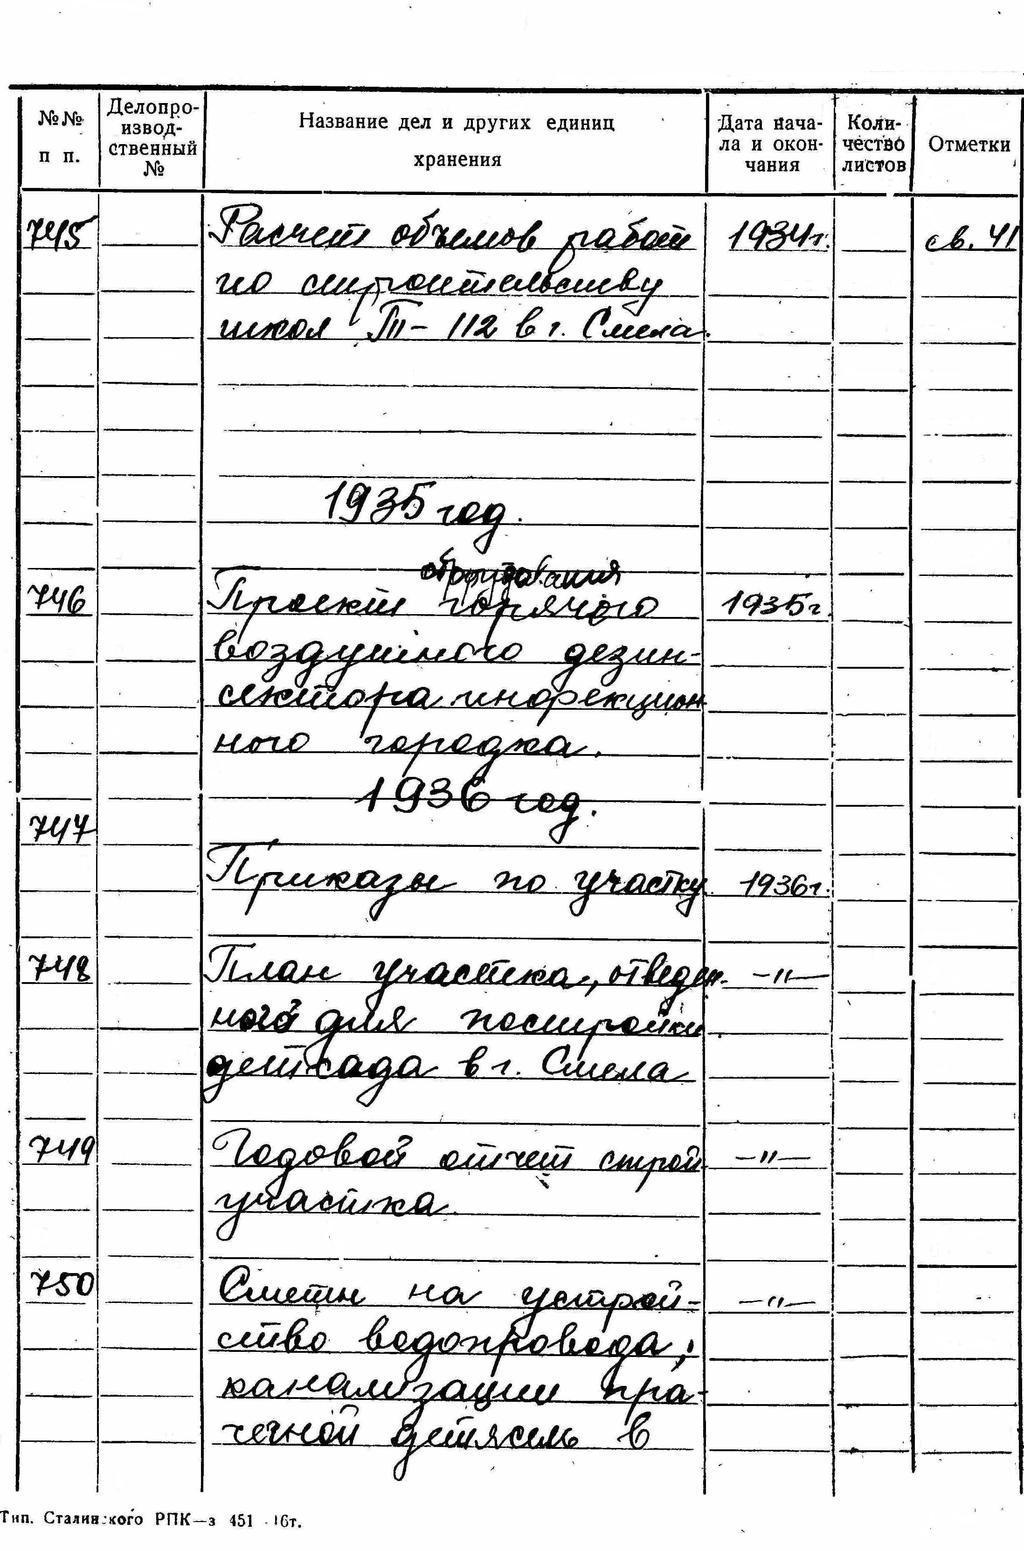 №№ п п.
Делопро-изводственный №
Название дел и других единиц хранения
Дата нача-ла и окон-чания
Коли-чество листов
Отметки
745 Расчет объемов работ 1934г. св. 41
по строительству
школ ТП-112 в г. Смела.
1935 год.
оборудования
746 Проект горячего 1935г.
воздушного дезин-
сектора инфекцион
ного городка.
1936 год.
747
Приказы по участку 1936г.
748 План участка, отведен- —"—
ного для постройки
детсада в г. Смела
749 Годовой отчет строй —"—
участка
750 Сметы на устрой- —"—
ство водопровода,
канализации пра-
чечной детясель в
Тип. Сталинского РПК—з 451 16т.